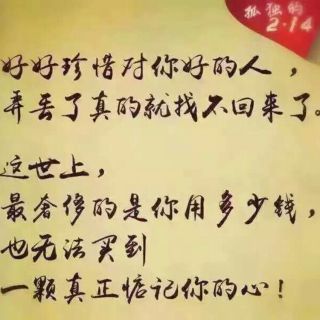 孤独的
2.14
好好珍惜对你好的人，
弄丢了真的就找不回来了。
这世上，
最奢侈的是你用多少钱，
也无法买到
一颗真正惦记你的心！